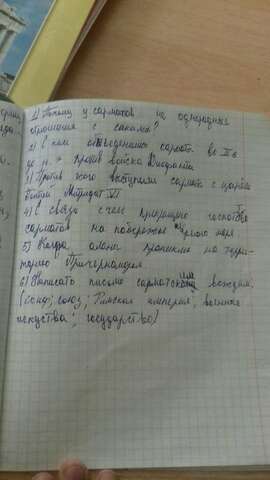 1) Почему у сарматов не однородны
отношения с саками?
2) С кем объеденились сарматы во II в
до н. э против войска Диофанта
3) Против кого выступили сарматы с царём
Митридат VI
4) В связи с чем прекращено господство
сарматов на побережье Чёрного моря
5) Когда аланы проникли на терри-
торию Причерноморья
6) Написать письмо сарматским вождям.
союз; Римская империя; военные
искусства; государство)